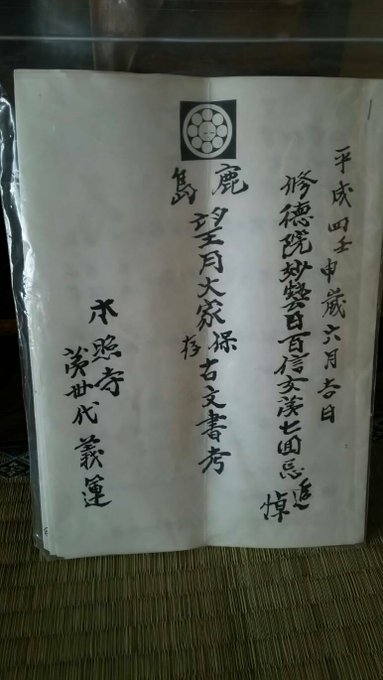 平成四壬申歳六月吉日
修徳院妙日百信女第七回忌追悼
鹿島 望月大家保存古文書考
本照寺
第世代 義運